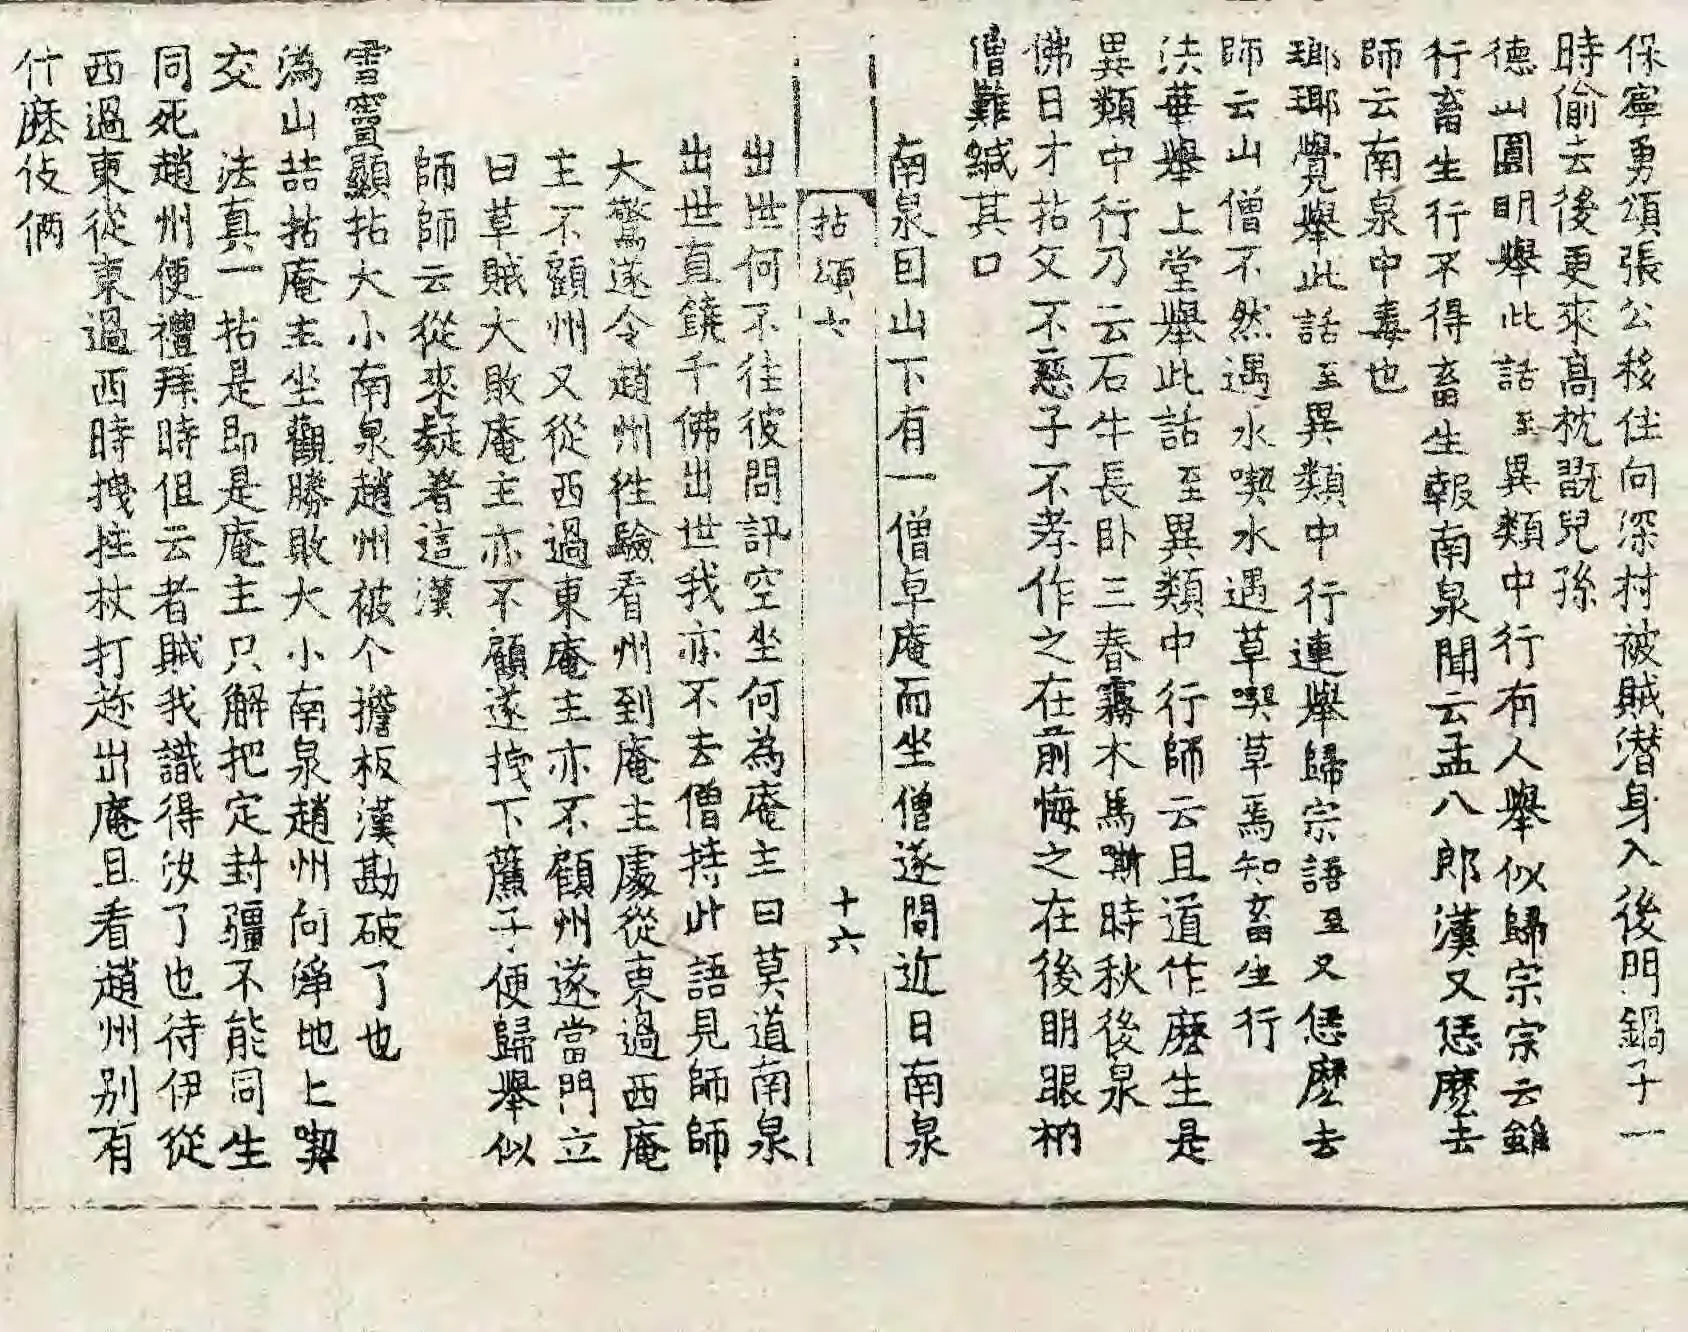 保寧勇頌張公移住向深村被賊潜身入後門鍋子一
時偷去後更來高枕翫兒孫
德山圓明舉此話至異類中行有人舉似歸宗宗云雖
行畜生行不得畜生報南泉聞云孟八郎漢又恁麽去
師云南泉中毒也
瑯瑘覺舉此話至異類中行連舉歸宗語至又恁麽去
師云山僧不然遇水喫水遇草喫草焉知畜生行
法華舉上堂舉此話至異類中行師云且道作麽生是
異類中行乃云石牛長卧三春霧木馬嘶時秋後泉
佛日才拈父不慈子不孝作之在前悔之在後明眼衲
僧難緘其口
南泉因山下有一僧卓庵而坐僧遂問近日南泉
拈頌七
十六
出世何不往彼問訊空坐何為庵主曰莫道南泉
出世直饒千佛出世我亦不去僧持此語見師師
大驚遂令趙州徃驗看州到庵主處從東過西庵
主不顧州又從西過東庵主亦不顧州遂當門立
曰草賊大敗庵主亦不顧遂拽下簾子便歸舉似
師師云從來疑著這漢
雪竇顯拈大小南泉趙州被个擔板漢勘破了也
溈山喆拈庵主坐觀勝敗大小南泉趙州向淨地上喫
交 法真一拈是即是庵主只解把定封疆不能同生
同死趙州便禮拜時但云者賊我識得汝了也待伊從
西過東從東過西時拽拄杖打趂出庵且看趙州別有
什麽伎倆